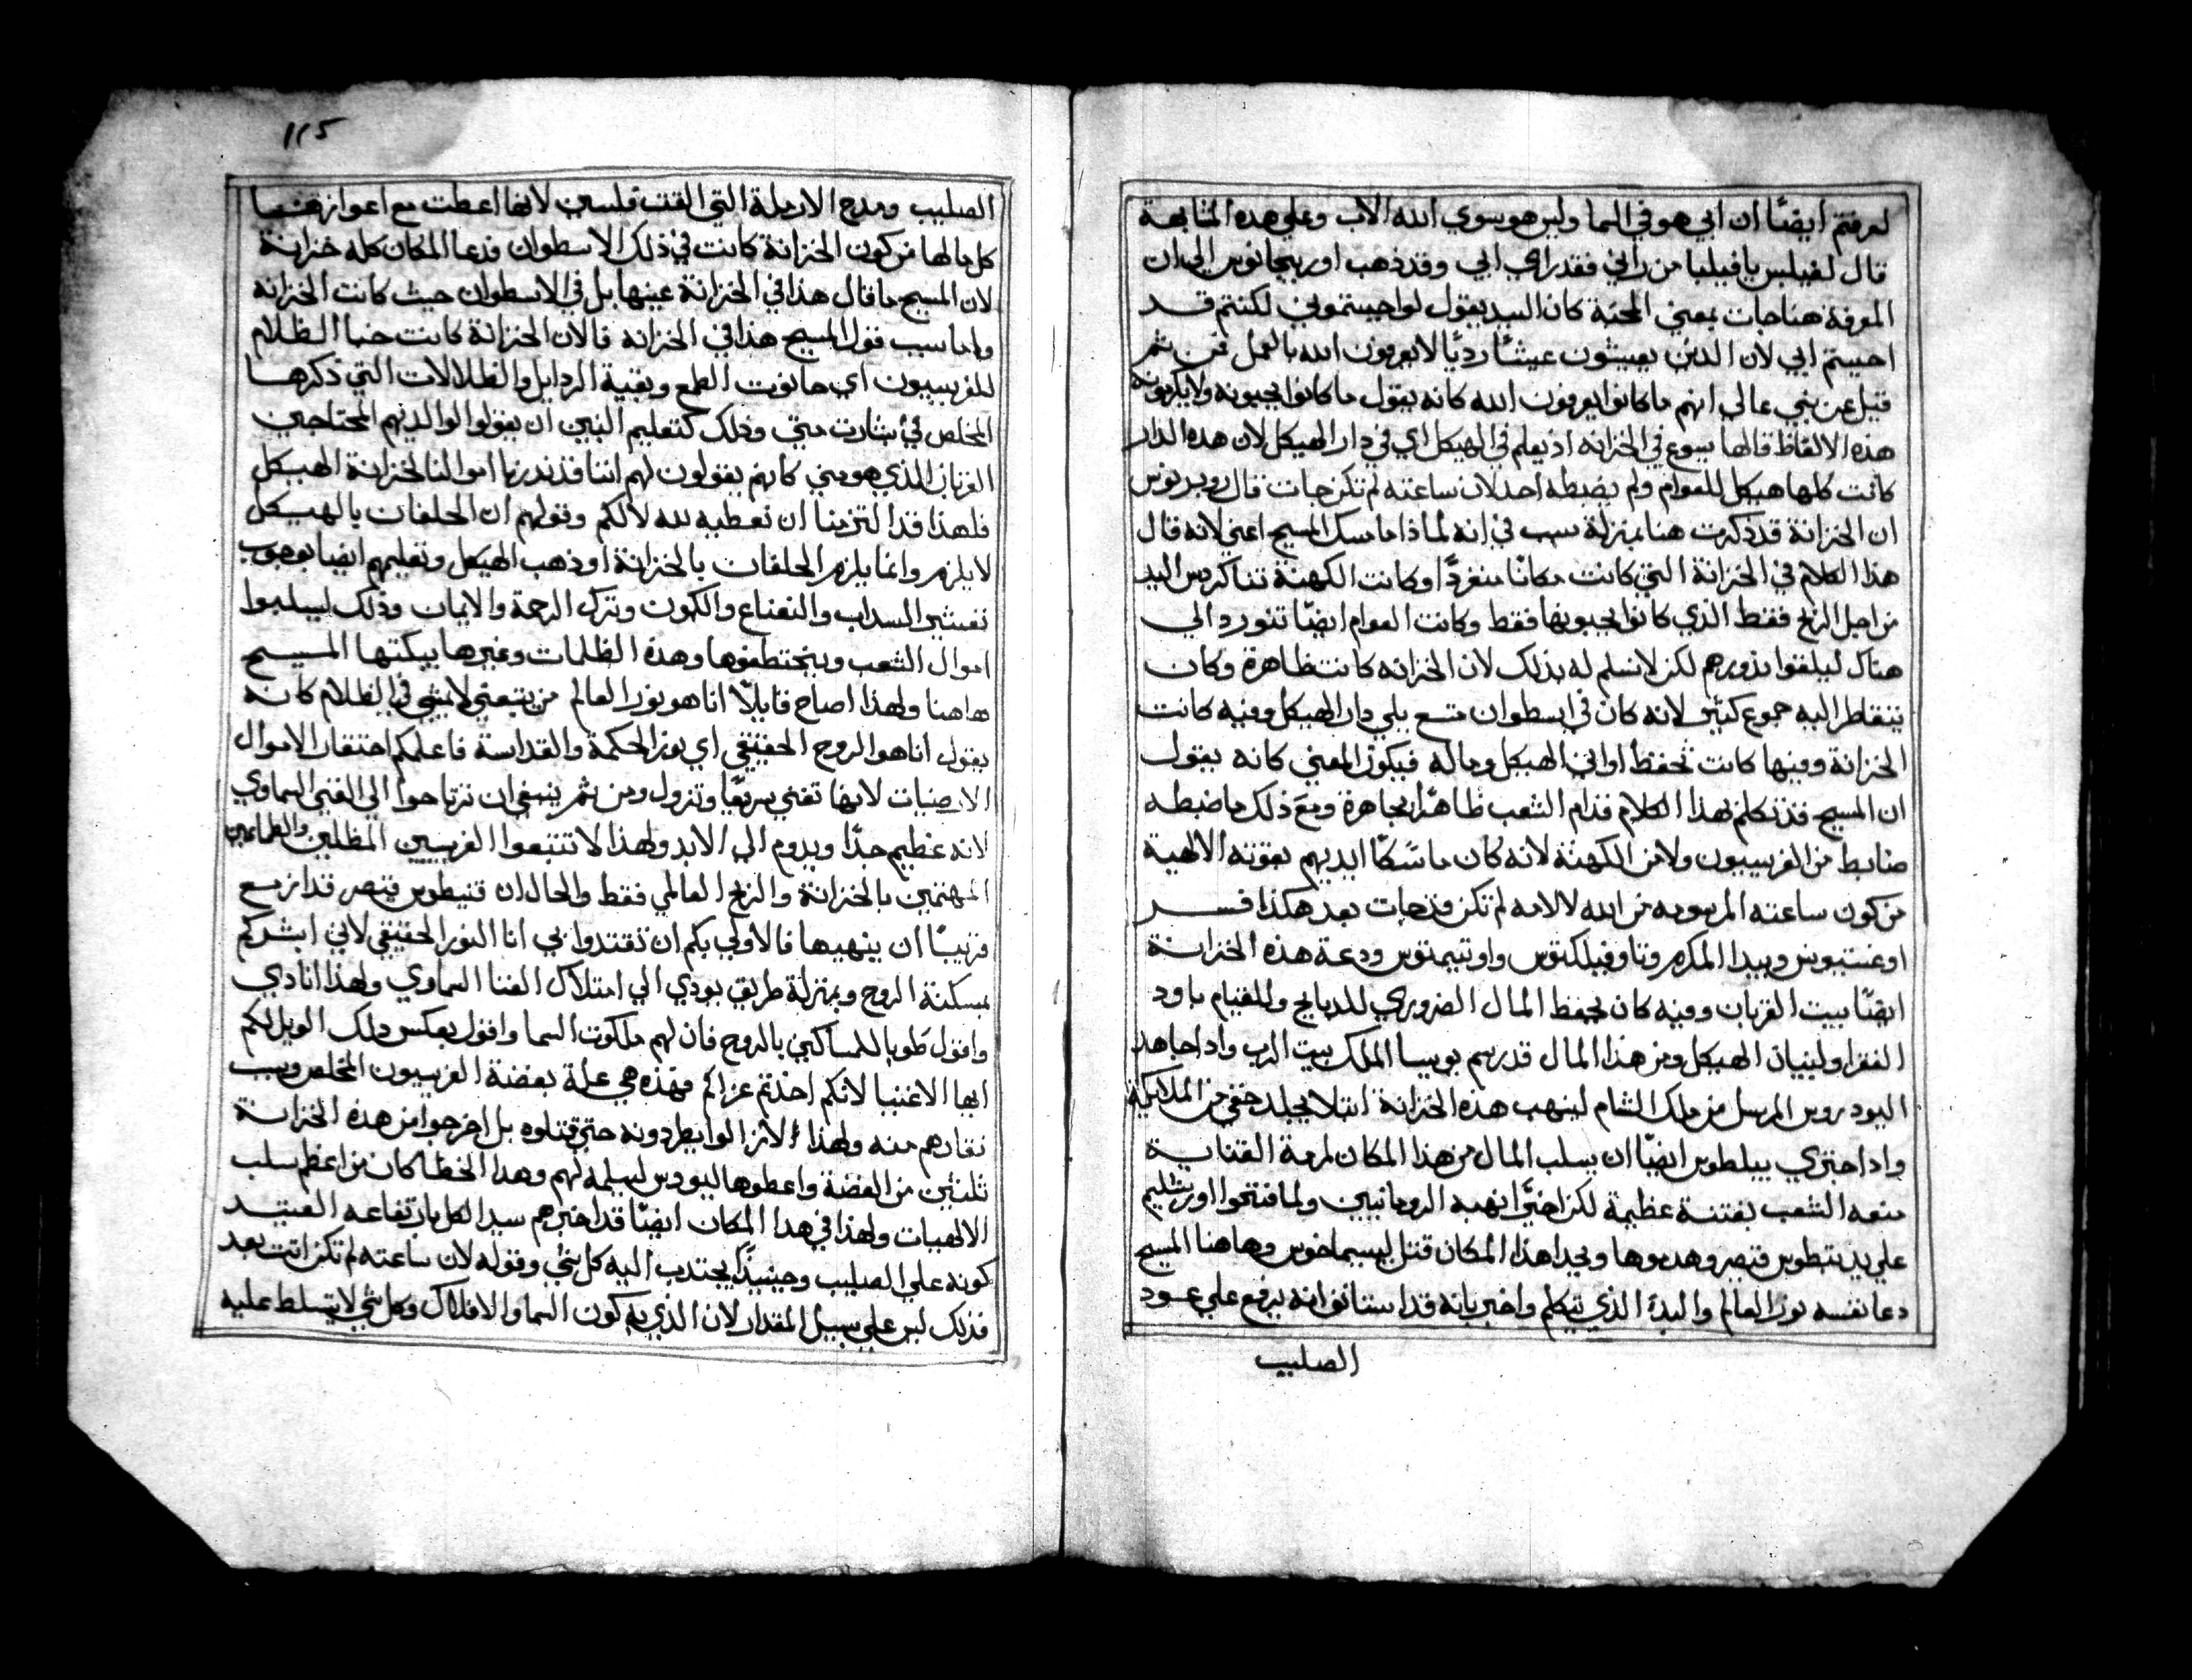 لعرفتم ايضًا ان ابي هو في السما وليس هو سوي الله الاب وعلي هده المتابعة
قال لفيلبس يا فيلبا من راني فقد راي ابي وقد ذهب اوريجانوس الي ان
المعرفة هنا جات بمعني المحبة كان السيد يقول لو احببتموني لكنتم قد
احببتم ابي لان الدين يعيشون عيشًا رديًا لا يعرفون الله بالعمل فمن ثم
قيل عن بني عالي انهم ما كانوا يعرفون الله كانه يقول ما كانوا يحبونه ولا يكرمونه
هذه الالفاظ قالها يسوع في الخزانه اذ يعلم في الهيكل اي في دار الهيكل لان هده الدار
كانت كلها هيكل للعوام ولم يضبطه احد لان ساعته لم تكن جات قال روبرتوس
ان الخزانة قد ذكرت هنا بمنزلة سبب في انه لماذا ما مسك المسيح اعني لانه قال
هذا الكلام في الخزانة التي كانت مكانًا منفردًا وكانت الكهنة تتاكردس اليه
من اجل الربح فقط الذي كانوا يحبونها فقط وكانت العوام ايضًا تتورد الي
هناك ليلقوا نذورهم لكن لا نسلم له بذلك لان الخزانه كانت ظاهرة وكان
يتقاطر اليه جموع كثير لانه كان في اسطوان متسع يلي دار الهيكل وفيه كانت
الخزانة وفيها كانت تحفظ اواني الهيكل وماله فيكون المعني كانه يقول
ان المسيح قد تكلم بهذا الكلام قدام الشعب ظاهرًا بمجاهرة ومع ذلك ما ضبطه
ضابط من الفريسيون ولا من الكهنة لانه كان ماسكًا ايديهم بقوته الالهية
من كون ساعته المرسومه من الله لالامه لم تكن قد جات بعد هكذا فسر
اوغستينوس وبيدا المكرم وتاوفيلكتوس واوتيميوس ودعة هذه الخزانة
ايضًا بيت القربان وفيه كان يحفظ المال الضروري للدبايح وللقيام باود
الفقرا ولبنيان الهيكل ومن هذا المال قد رمم يوسيا الملك بيت الرب واد اجاهد
اليودروس المرسل من ملك الشام لينهب هذه الخزانة ابتلا بجلد خفي من الملايكة
واد اجتري بيلطوس ايضًا ان يسلب المال من هذا المكان لمرمة القناية
منعه الشعب بفتنة عظيمة لكن اخيرًا نهبه الرومانيين ولما فتحوا اورشليم
علي يد تيطوس قيصر وهدموها ويجدا هذا المكان قتل ليسيماخوس وهاهنا المسيح
دعا نفسه نور العالم والبدء الذي يتكلم واخبر بانه قد استانو انه يرفع علي عود
الصليب
115
الصليب ومدح الارملة التي القت فلسين لانها اعطت مع اعوازها
كل مالها من كون الخزانة كانت في ذلك الاسطوان فدعا المكان كله خزانة
لان المسيح ما قال هذا في الخزانة عينها بل في الاسطوان حيث كانت الخزانة
واما سبب قول المسيح هذا في الخزانه قالان الخزانة كانت خبا الظلام
للفريسيون اي حانوت الطمع وبقية الردايل والظلالات التي ذكرها
المخلص في بشارت متي وذلك كتعليم البنين ان يقولوا لوالديهم المحتاجين
القربان الذي هو مني كانهم يقولون لهم اننا قد ندرنا اموالنا لخزانة الهيكل
فلهذا قد التزمنا ان نعطيه لله لا لكم وقولهم ان الحلفان بالهيكل
لا يلزم وانما يلزم الحلفان بالخزانة او ذهب الهيكل وتعليمهم ايضا بوجوب
تعشير السداب والنعناع والكمون وترك الرحمة والايمان وذلك ليسلبوا
اموال الشعب ويختطفوها وهذه الظلمات وغيرها يبكتها المسيح
هاهنا ولهذا اصاح قايلًا انا هو نور العالم من يتبعني لا يمشي في الظلام كانه
يقول انا هو الروح الحقيقي اي نور الحكمة والقداسة فاعلمكم احتقار الاموال
الارضيات لانها تفني سريعًا وتزول ومن ثم ينبغي ان ترتاحوا الي الغني السماوي
لانه عظيم جدًا ويدوم الي الابد ولهذا لا تتبعوا الفريسيين المظلين والطامعين
المهتمين بالخزانة والربح العالمي فقط والحال ان تيطوس قيصر قد ازمع
قريبًا ان ينهبها فالاولي بكم ان تقتدوا بي انا النور الحقيقي لاني ابشركم
بمسكنة الروح وبمنزلة طريق يودي الي امتلاك الغنا السماوي ولهذا انادي
واقول طوبا للمساكين بالروح فان لهم ملكوت السما واقول بعكس دلك الويل لكم
ايها الاغنيا لانكم اخذتم عزاكم فهذه هي علة بغضة الفريسيون المخلص وسبب
نفارهم منه ولهذا لازالوا يطردونه حتي قتلوه بل اخرجوا من هذه الخزانة
ثلثين من الفضة واعطوها ليودس ليسلمه لهم وهدا الخطا كان من اعظم سلب
الالهيات ولهذا في هدا المكان ايضًا قد اخبرهم سيد الكل بارتفاعه العتيد
كونه علي الصليب وحينيذٍ يجتدب اليه كل شي وقوله لان ساعته لم تكن اتت بعد
فذلك ليس علي سبيل المقدار لان الذي به كون السما والافلاك وكل شي لا يتسلط عليه